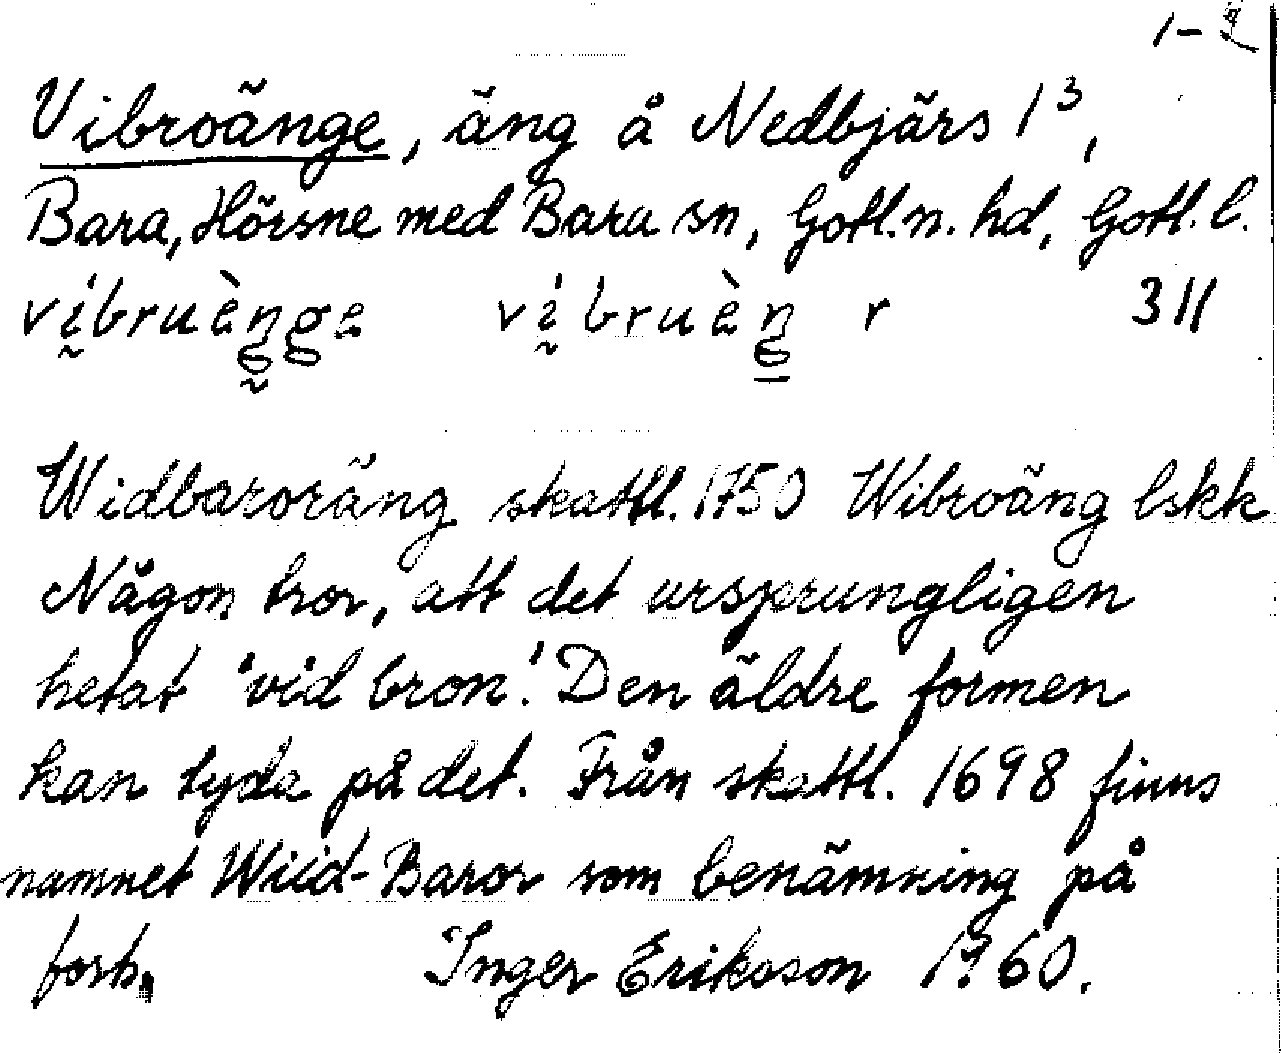 1-2
Vibroänge, äng å Nedbjärs 1³,
Bara, Hörsne med Bara sn, Gotl.n. hd, Gotl. l.
víbruènge víbruèn r 311
Widbaroräng skattl. 1750 Wibroäng lskk
Någon tror, att det ursprungligen
hetat 'vid bron'. Den äldre formen
kan tyda på det. Från skattl. 1698 finns
namnet Wiid-Baror som benämning på
forb.
Inger Eriksson 1960.